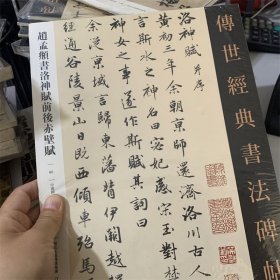 傳世經典書法碑帖
趙孟頫書洛神賦前後赤壁賦
洛神賦 并序
黃初三年余朝京師還濟洛川古人
有言斯水之神名曰宓妃感宋玉對楚
王神女之事遂作斯賦其詞曰
余從京域言歸東藩背伊闕越轘
轅經通谷陵景山日既西傾車殆馬